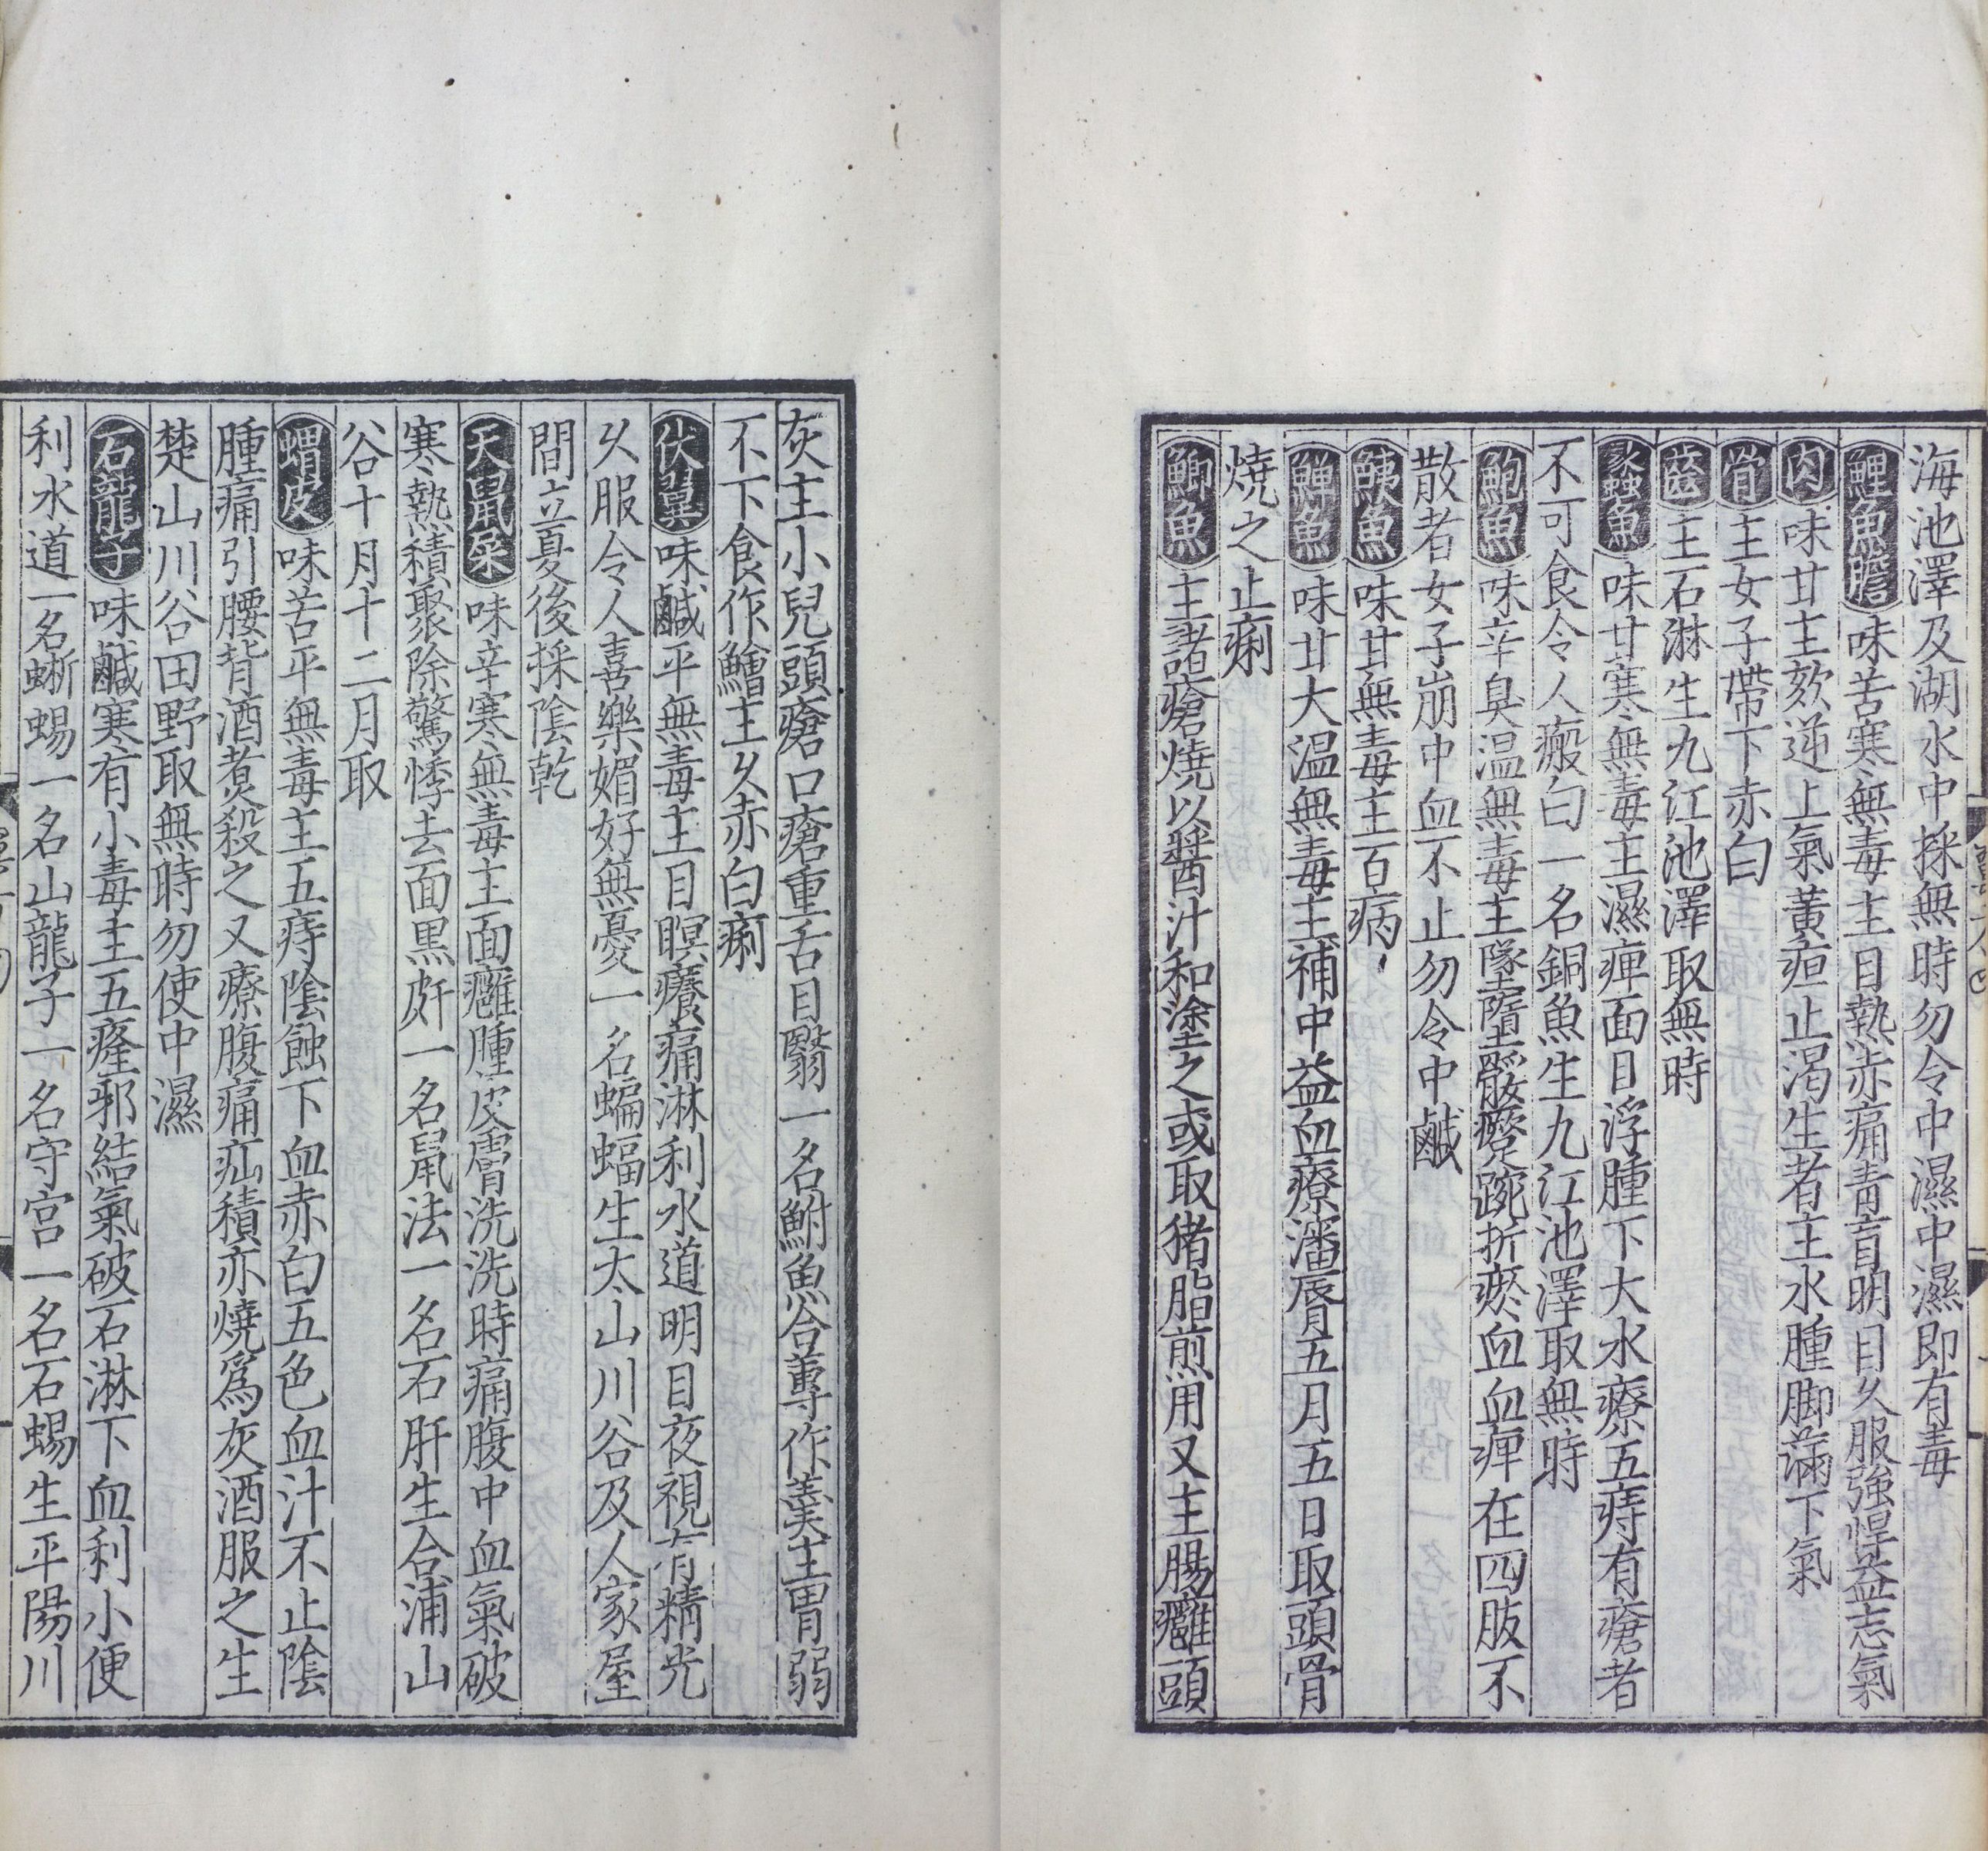 海池澤及湖水中採無時勿令中濕中濕即有毒
鯉魚膽味苦寒無毒主目熱赤痛青盲明目久服強悍益志氣
肉味甘主欬逆上氣黃疸止渴生者主水腫脚滿下氣
骨主女子帶下赤白
齒主石淋生九江池澤取無時
蠡魚味甘寒無毒主濕痺面目浮腫下大水療五痔有瘡者
不可食令人瘢白一名鮦魚生九江池澤取無時
鮑魚味辛臭温無毒主墜墮骽蹷踠折瘀血血痺在四肢不
散者女子崩中血不止勿令中鹹
鮧魚味甘無毒主百病
鱓魚味甘大温無毒主補中益血療瀋脣五月五日取頭骨
燒之止痢
鯽魚主諸瘡燒以醬汁和塗之或取猪脂煎用又主腸癰頭
灰主小兒頭瘡口瘡重舌目翳一名鮒魚合蓴作羹主胃弱
不下食作鱠主久赤白痢
伏翼味鹹平無毒主目瞑癢痛淋利水道明目夜視有精光
久服令人喜樂媚好無憂一名蝙蝠生太山川谷及人家屋
間立夏後採陰乾
天鼠屎味辛寒無毒主面癰腫皮膚洗洗時痛腹中血氣破
寒熱積聚除驚悸去面黑皯一名鼠法一名石肝生合浦山
谷十月十二月取
蝟皮味苦平無毒主五痔陰蝕下血赤白五色血汁不止陰
腫痛引腰背酒煮殺之又療腹痛疝積亦燒爲灰酒服之生
楚山川谷田野取無時勿使中濕
石龍子味鹹寒有小毒主五癃邪結氣破石淋下血利小便
利水道一名蜥蜴一名山龍子一名守宮一名石蜴生平陽川